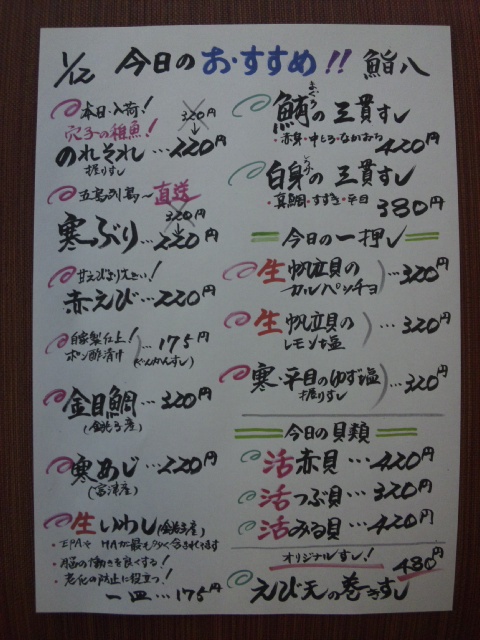 1/12 今日のおすすめ!! 鮨八
本日入荷!
穴子の稚魚!
320円
のれそれ…220円
握りすし
五島列島〜直送
320円
寒ぶり…220円
甘えびより大きい!
赤えび…220円
自家製仕上!
ポン酢漬け
(ぐんかんすし)
…175円
金目鯛…320円
(銚子産)
寒あじ…220円
(富津産)
生いわし(銚子産)
・EPAやHAが最も多く含まれてます
・脳の働きを良くする!
・老化の防止に役立つ!
一皿…175円
まぐろ
鮪の三貫すし
・赤身・中とろ・なかおち
420円
白身の三貫すし
・真鯛・すずき・平目
380円
今日の一押し
生帆立貝の
カルパッチョ
…320円
生帆立貝の
レモン塩
…320円
寒・平目のゆず塩
握りすし
…320円
今日の貝類
活赤貝…420円
活つぶ貝…320円
活みる貝…420円
オリジナルすし!
480円
えび天の巻きすし